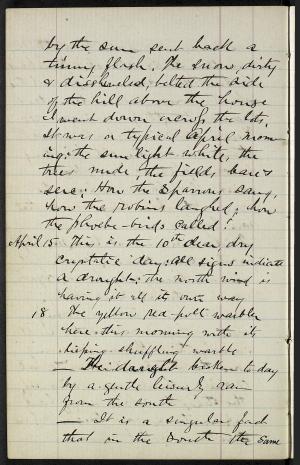 by the sun sent back a
tinny flash. The snow, dirty
& disheveled, belted the side
of the hill above the house
I went down across the lots,
It was a typical April morn-
ing; the sun light white, the
trees nude, the fields bare &
sere. How the Sparrows sang,
how the robins laughed; how
the phoebe-birds called!
April 15- This is the 10th clear, dry
crystalic day; all signs indicate
a drought; the north wind is
having it all its own way
18 The yellow red-poll warbler
here this morning with its
chipping-shuffling warble
— The drought broken to-day
by a gentle leisurely rain
from the south
— It is a singular fact
that in the South the same